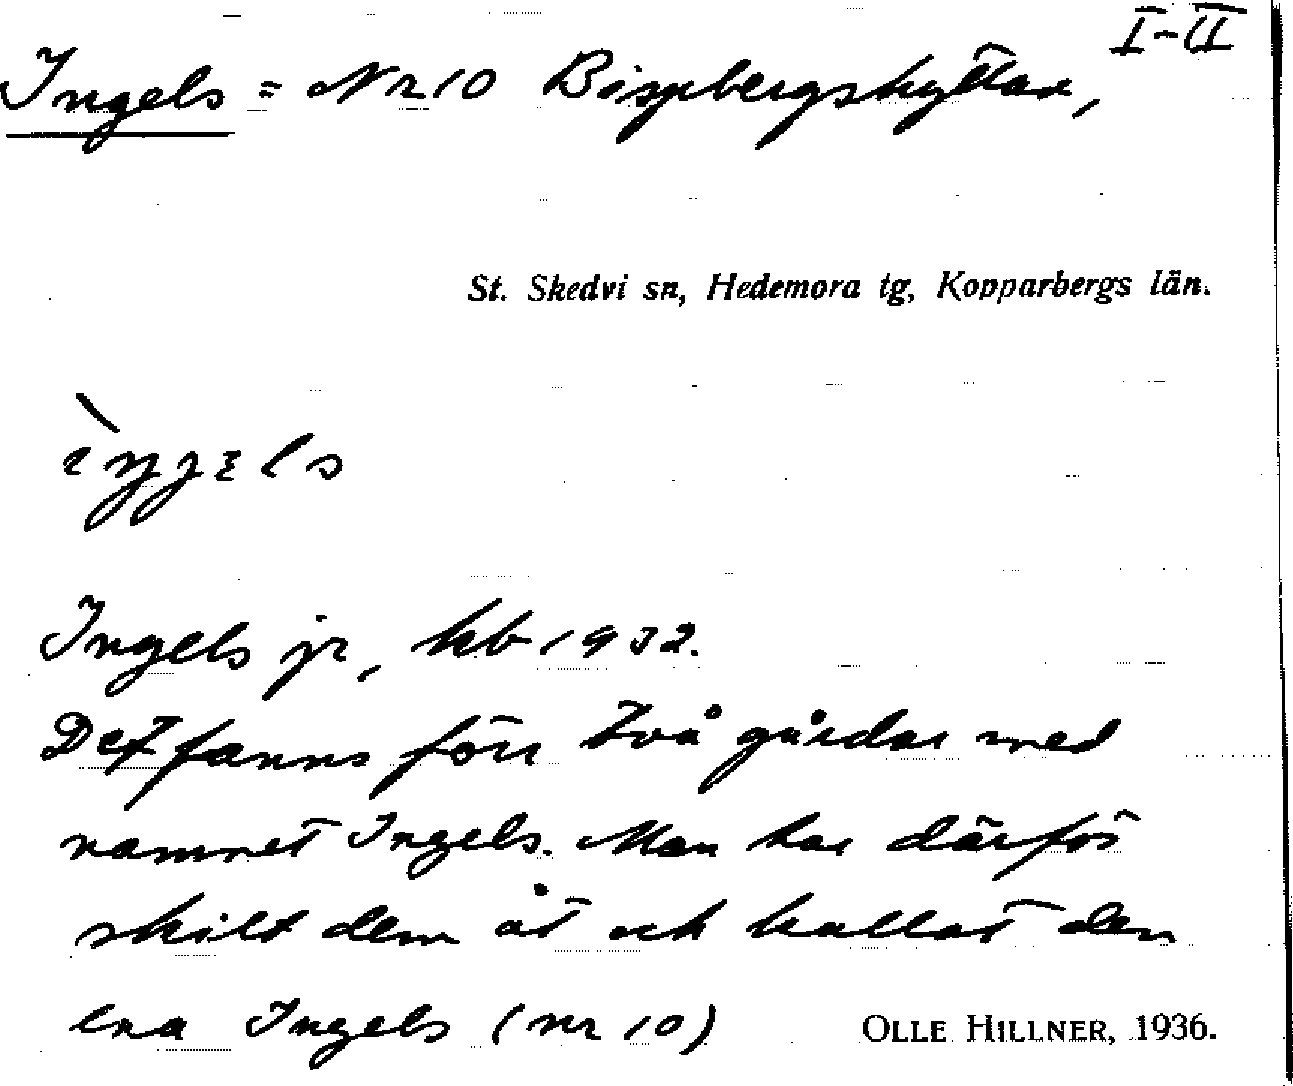 I-II
Ingels = Nr 10 Bispbergshyttan,
St. Skedvi sn, Hedemora tg, Kopparbergs län.
Ingels jr, kb 1932.
Det fanns förr två gårdar med
namnet Ingels. Man har därför
skilt dem åt och kallat den
ena Ingels (nr 10)
OLLE HILLNER, 1936.